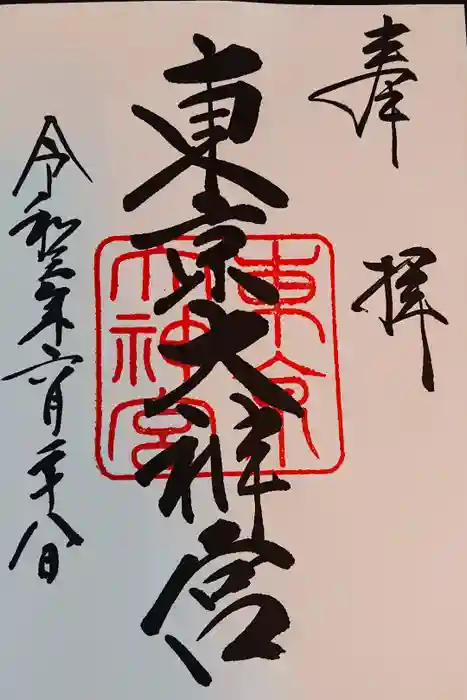 奉拝
東京大神宮
東京
大神宮
令和三年六月二十八日